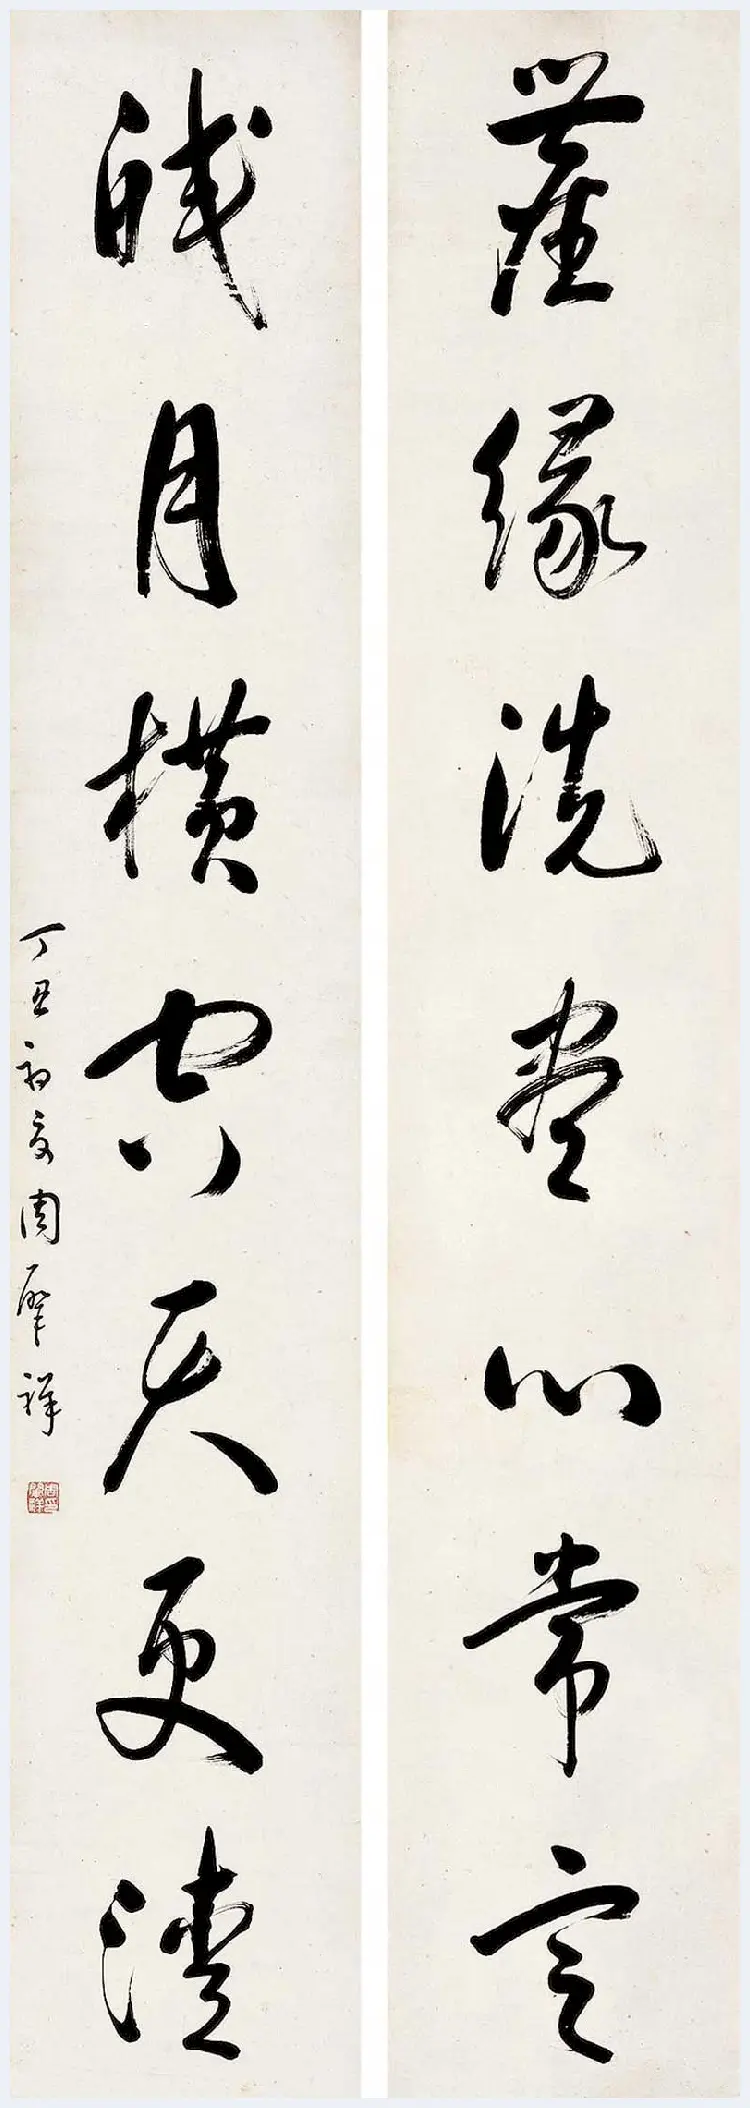 塵緣洗盡心常定
月橫空天更清
丁丑初夏周肇祥